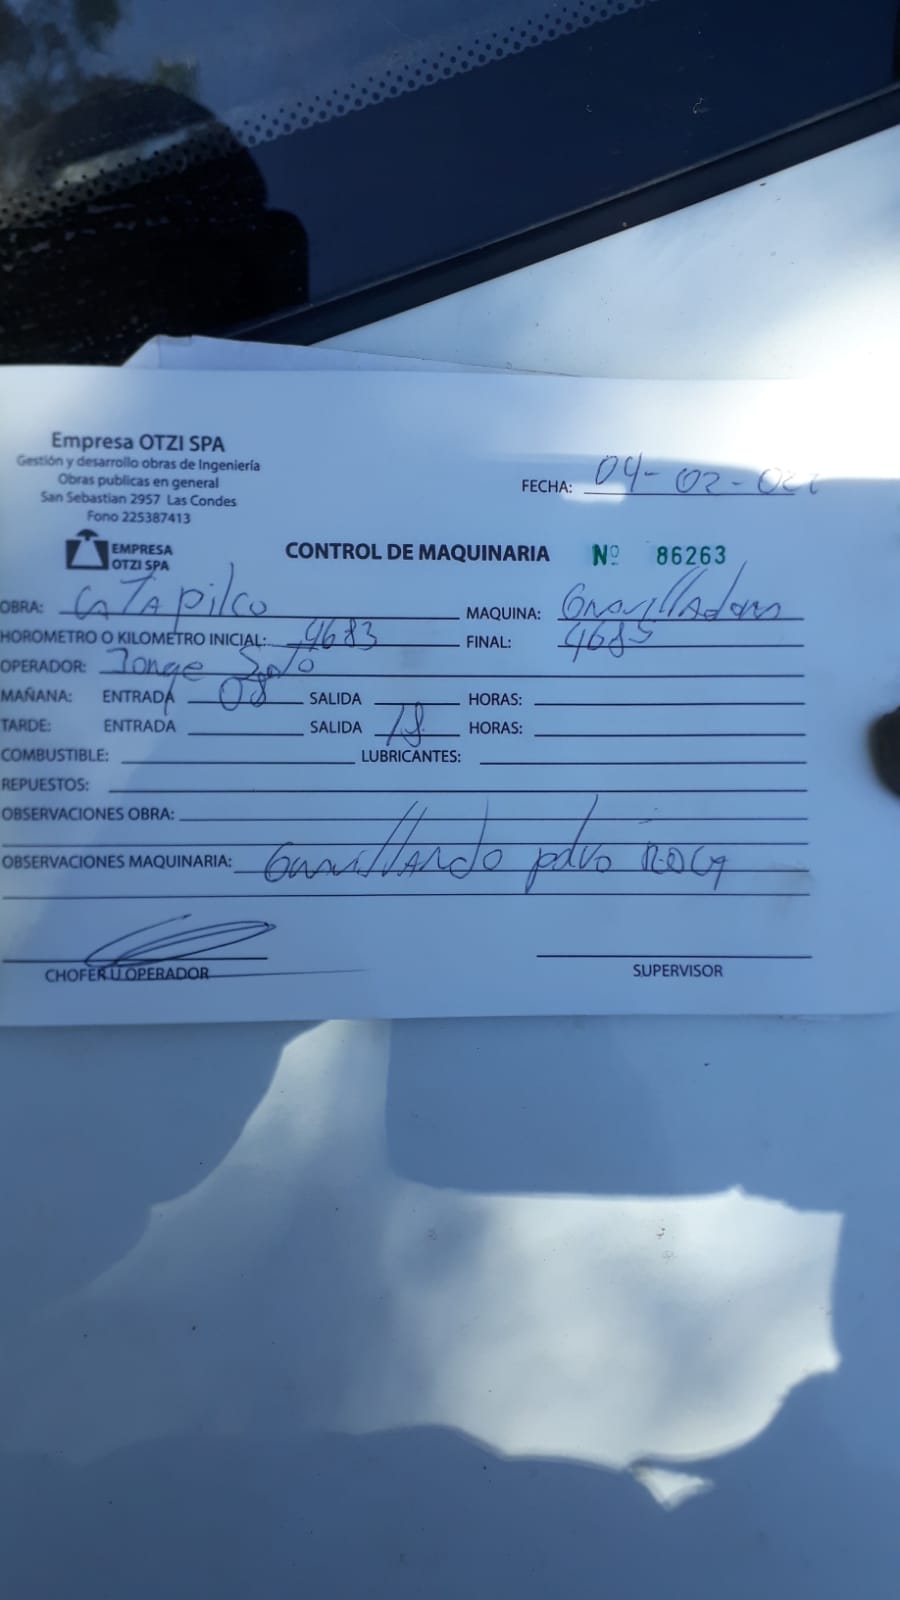 Empresa OTZI SPA
Gestión y desarrollo obras de Ingeniería
Obras publicas en general
San Sebastian 2957 Las Condes
Fono 225387413
FECHA: 04-02-022
EMPRESA
OTZI SPA
CONTROL DE MAQUINARIA Nº 86263
OBRA: CATApilco MAQUINA: GravillAdora
HOROMETRO O KILOMETRO INICIAL: 4683 FINAL: 4685
OPERADOR: Jorge Soto
MAÑANA: ENTRADA 08 SALIDA HORAS:
TARDE: ENTRADA SALIDA 18 HORAS:
COMBUSTIBLE: LUBRICANTES:
REPUESTOS:
OBSERVACIONES OBRA:
OBSERVACIONES MAQUINARIA: GravillAndo polvo ROCA
CHOFER U OPERADOR SUPERVISOR